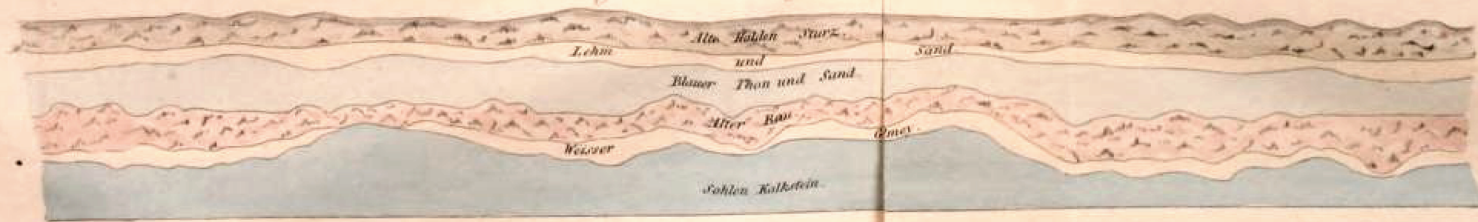 Alte Halden Sturz.
Lehm und Sand
Blauer Thon und Sand.
Alter Bau.
Weisser
Sohlen Kalkstein.